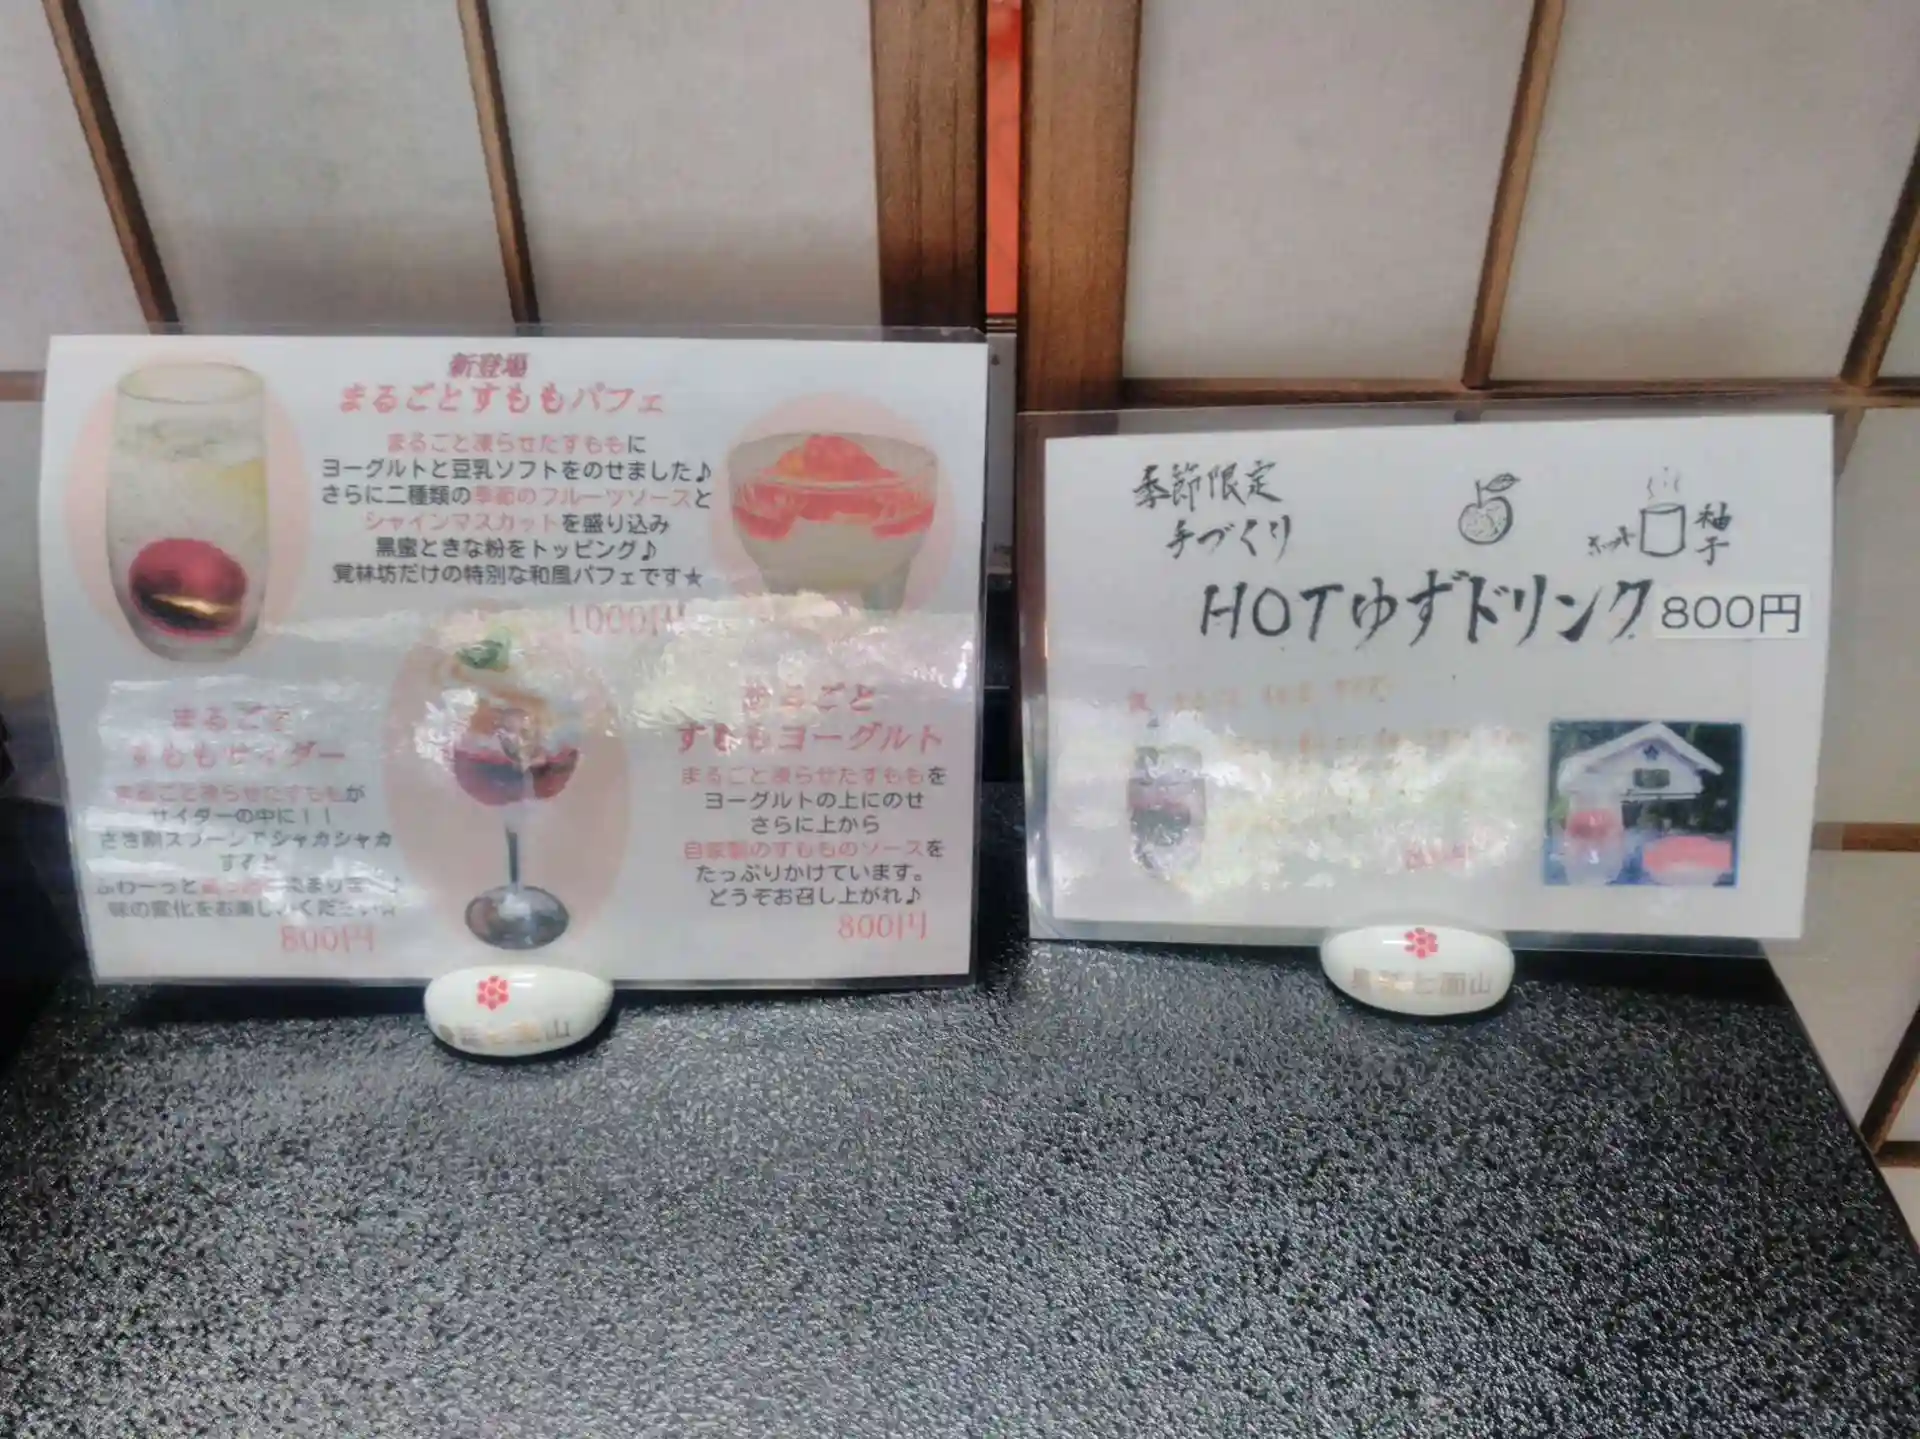 新登場
まるごとすももパフェ
まるごと凍らせたすももに
ヨーグルトと豆乳ソフトをのせました♪
さらに二種類の季節のフルーツソースと
シャインマスカットを盛り込み
黒蜜ときな粉をトッピング♪
覚林坊だけの特別な和風パフェです★
1000円
まるごと
すももサイダー
凍らせたすももが
サイダーの中に!!
さき割スプーンでシャカシャカ
すると
味の変化をお楽しみください
800円
まるごと
すももヨーグルト
まるごと凍らせたすももを
ヨーグルトの上にのせ
さらに上から
自家製のすもものソースを
たっぷりかけています。
どうぞお召し上がれ♪
800円
季節限定
手づくり
ホット
柚子
HOTゆずドリンク 800円
七面山